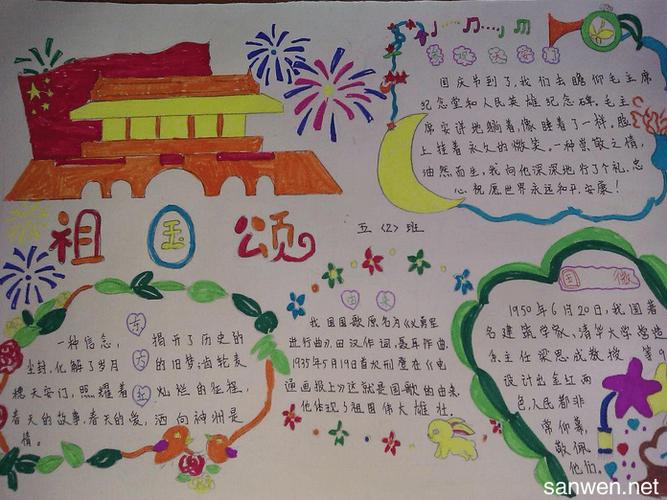 国庆节到了,我们去瞻仰毛主席
纪念堂和人民英雄纪念碑。毛主
席安详地躺着,像睡着了一样。脸
上挂着永久的微笑,一种崇敬之情,
油然而生,我向他深深地行了个礼,忠
心祝愿世界永远和平,安康!
祖国颂
五〈2〉班
东方红
一种信念,揭开了历史的
尘封,化解了岁月的旧梦;齿轮麦
穗天安门,照耀着灿烂的征程,
春天的故事,春天的爱,洒向神州是
情。
由来
我国国歌原名为《义勇军
进行曲》,田汉作词,聂耳作曲,
1935年5月19日首次刊登在《电
通画报上》这就是国歌的由来,
他体现了祖国伟大雄壮。
国徽
1950年6月20日,我国著
名建筑学家,清华大学营造
系主任梁思成教授
设计出金红两
色,人民都非
常仰慕,
敬佩
他们。
sanwen.net